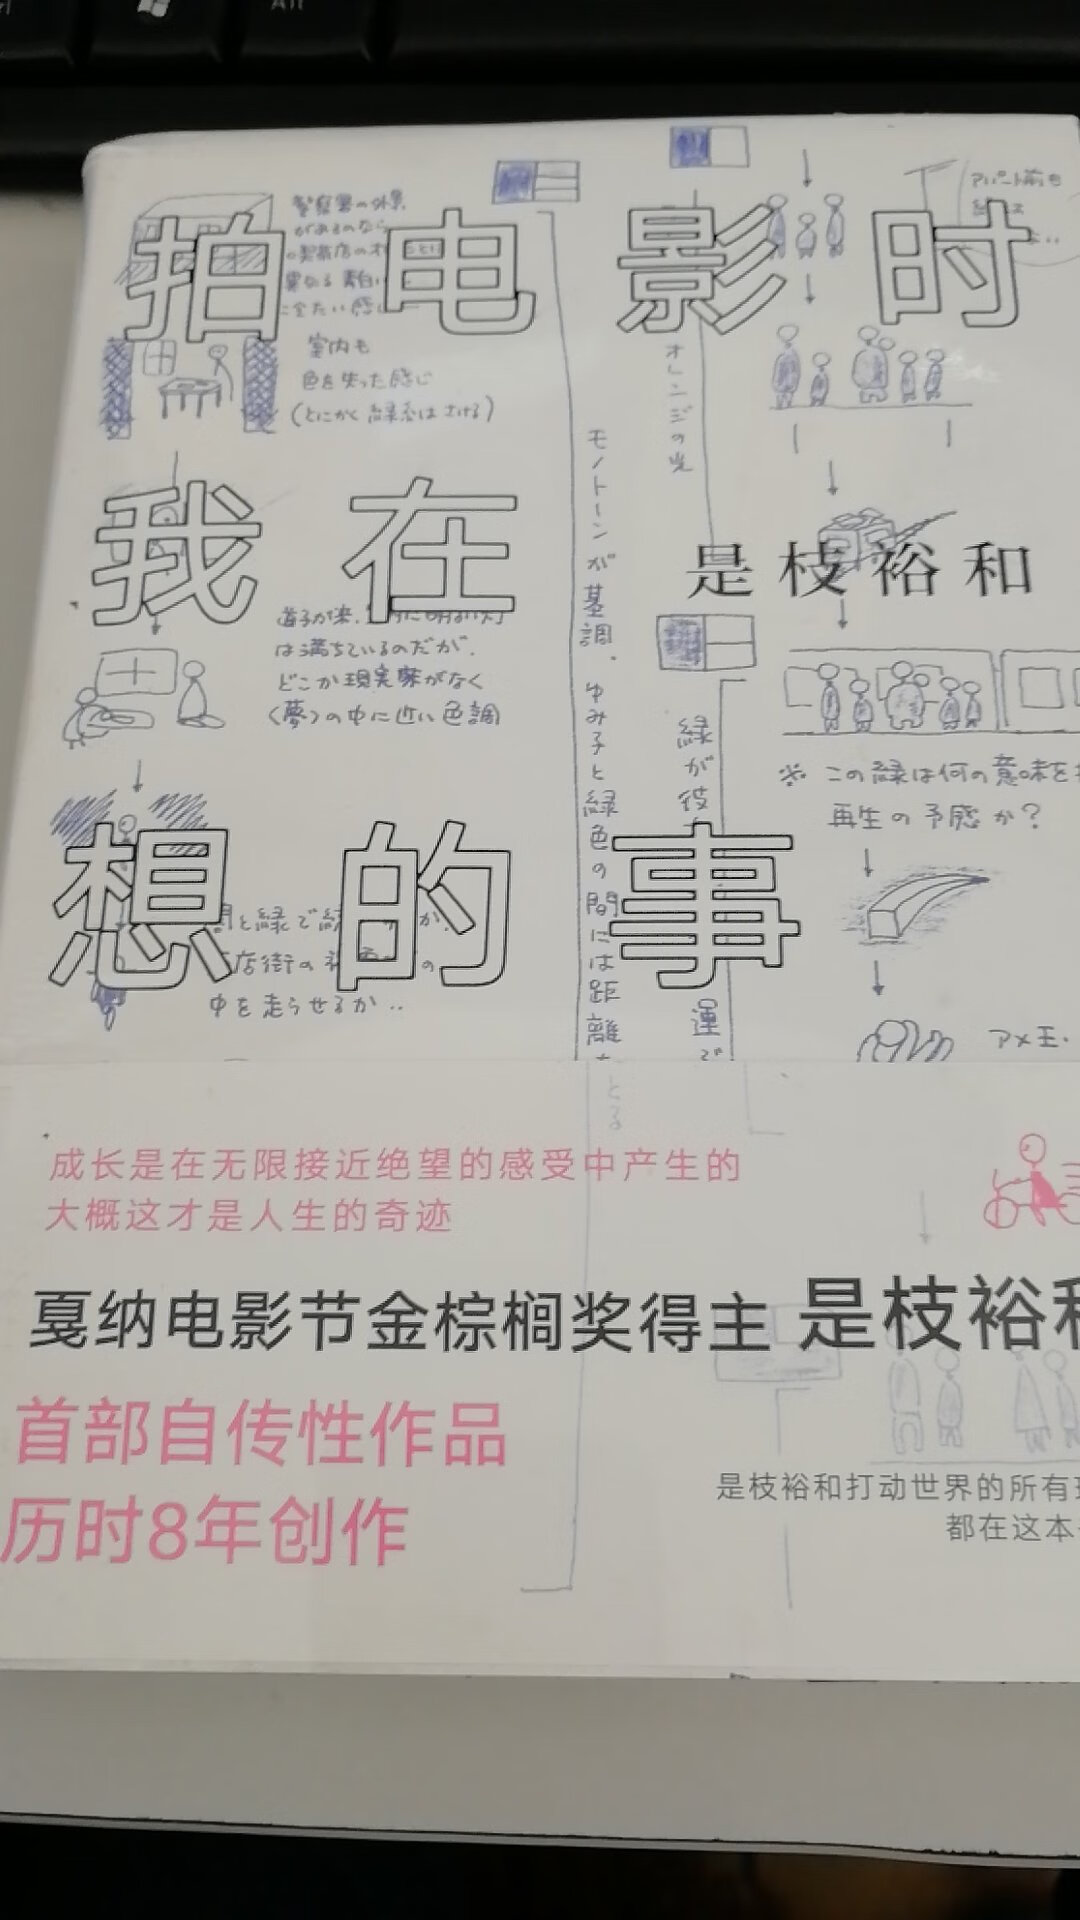 Alt
警察署の外景
があるのなら
室内も
色を失った感じ
(とにかく緑系はさける)
拍电影时
アパート前も
オレンジの光
モノトーンが基調、ゆみ子と緑色の間には距離をとる
我在
是枝裕和
は満ちているのだが、
どこか現実感がなく
(夢)の中に近い色調
緑が役
運で
※この緑は何の意味を
再生の予感か?
想的事
中を走らせるか..
アメ玉.
成长是在无限接近绝望的感受中产生的
大概这才是人生的奇迹
戛纳电影节金棕榈奖得主 是枝裕和
首部自传性作品
历时8年创作
是枝裕和打动世界的所有
都在这本